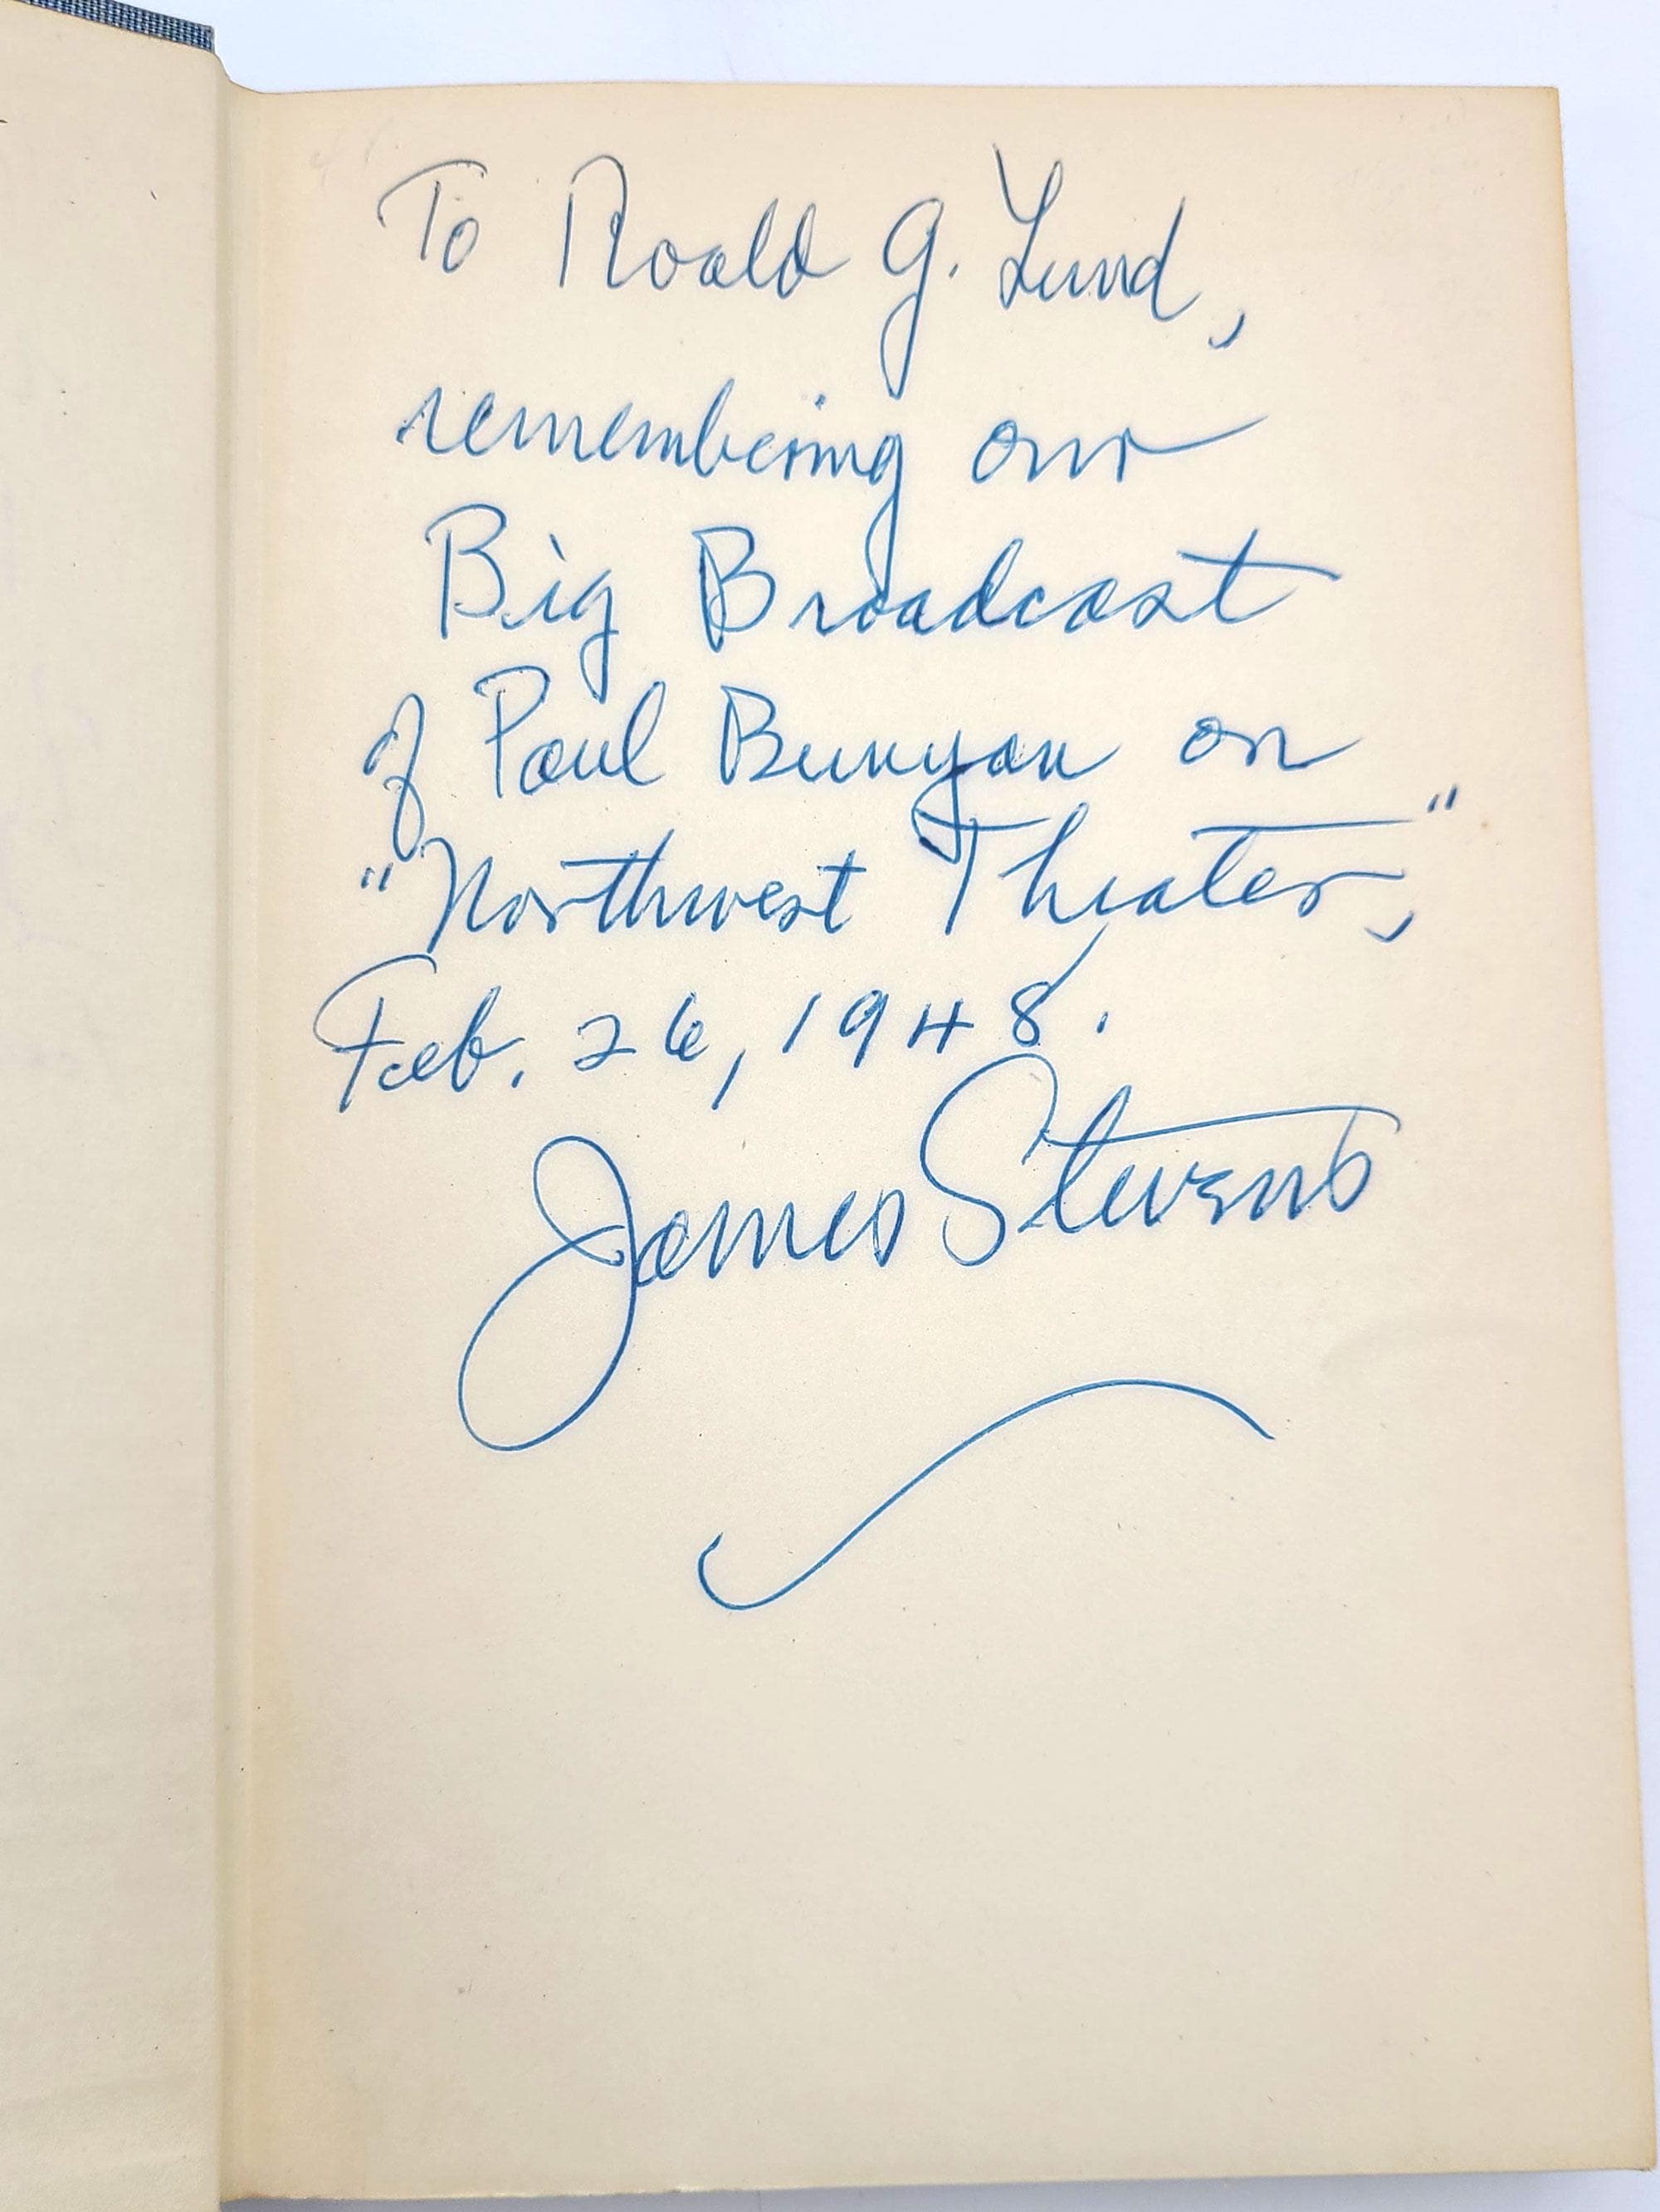 To Roald G. Lund,
remembering our
Big Broadcast
of Paul Bunyan on
"Northwest Theater,"
Feb. 26, 1948.
James Stevens